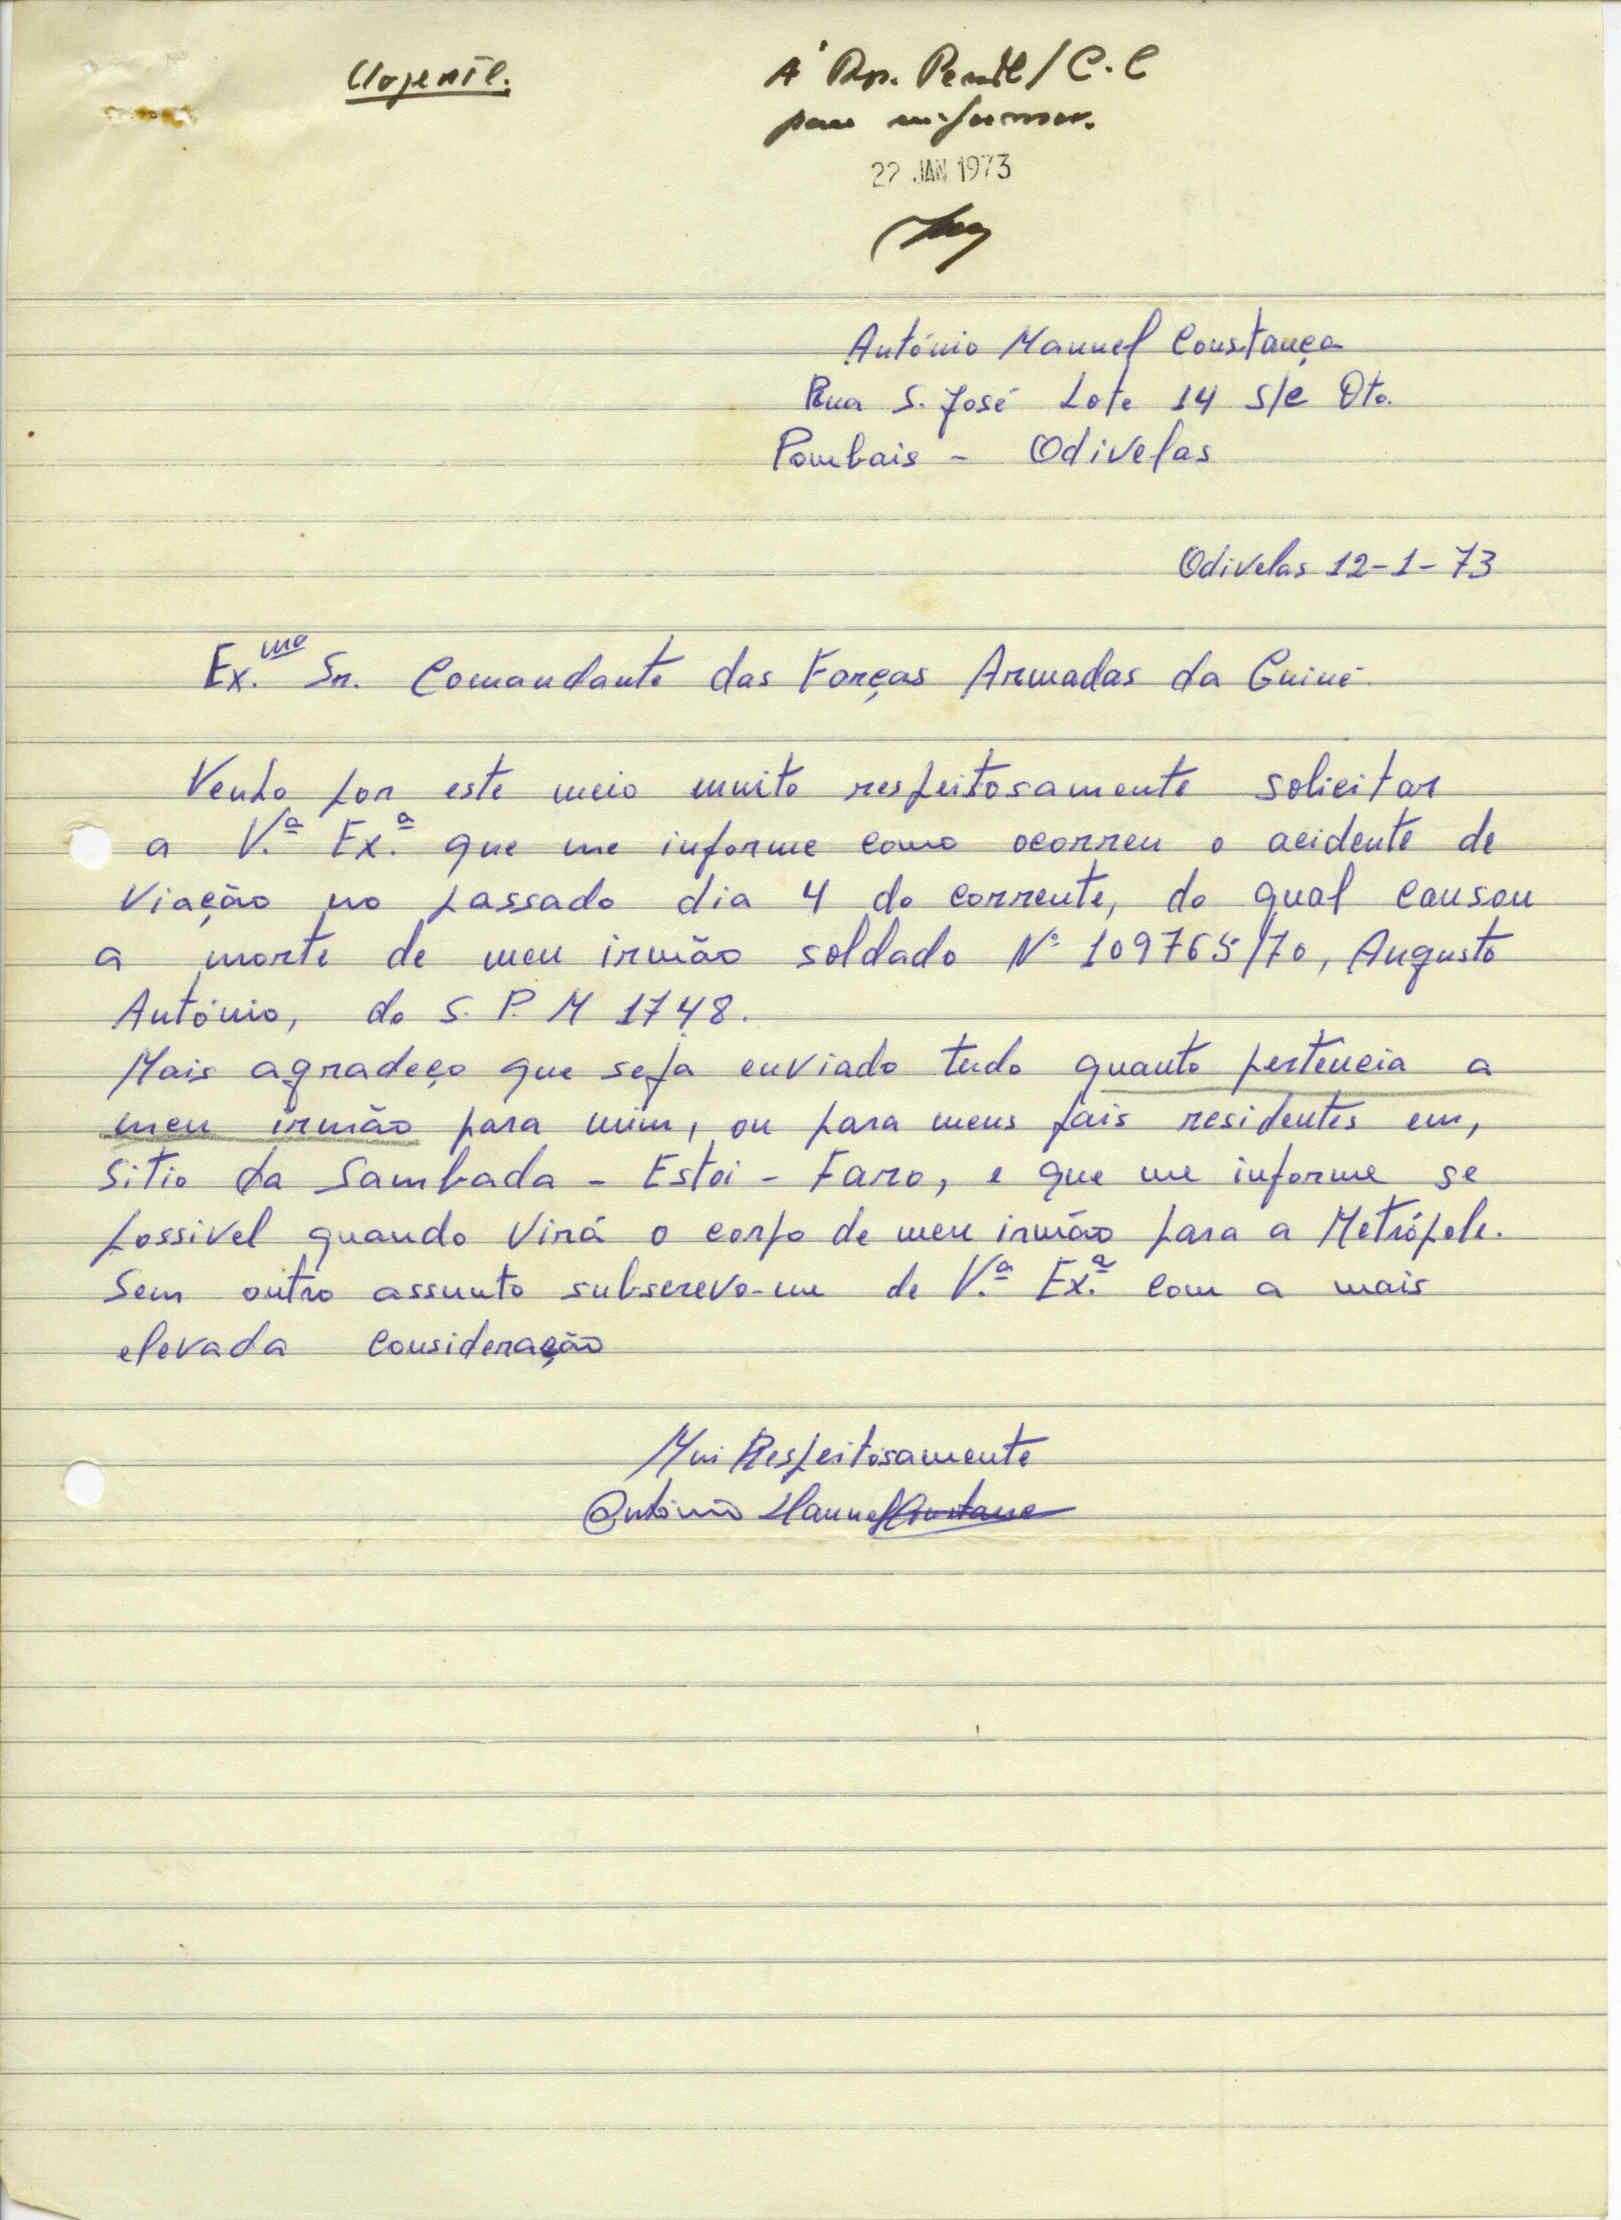 Urgente.
À Rep. Pessoal / C.C
para informar.
22 JAN 1973
António Manuel Constança
Rua S. José Lote 14 s/c Dto.
Pombais - Odivelas
Odivelas 12-1-73
Ex.mo Sr. Comandante das Forças Armadas da Guiné
Venho por este meio muito respeitosamente solicitar
a V.ª Ex.ª que me informe como ocorreu o acidente de
viação no passado dia 4 do corrente, do qual causou
a morte de meu irmão soldado Nº 109765/70, Augusto
António, do S. P. M 1748.
Mais agradeço que seja enviado tudo quanto pertencia a
meu irmão para mim, ou para meus pais residentes em,
Sitio da Sambada - Estoi - Faro, e que me informe se
possivel quando virá o corpo de meu irmão para a Metrópole.
Sem outro assunto subscrevo-me de V.ª Ex.ª com a mais
elevada consideração
Mui Respeitosamente
António Manuel Constança